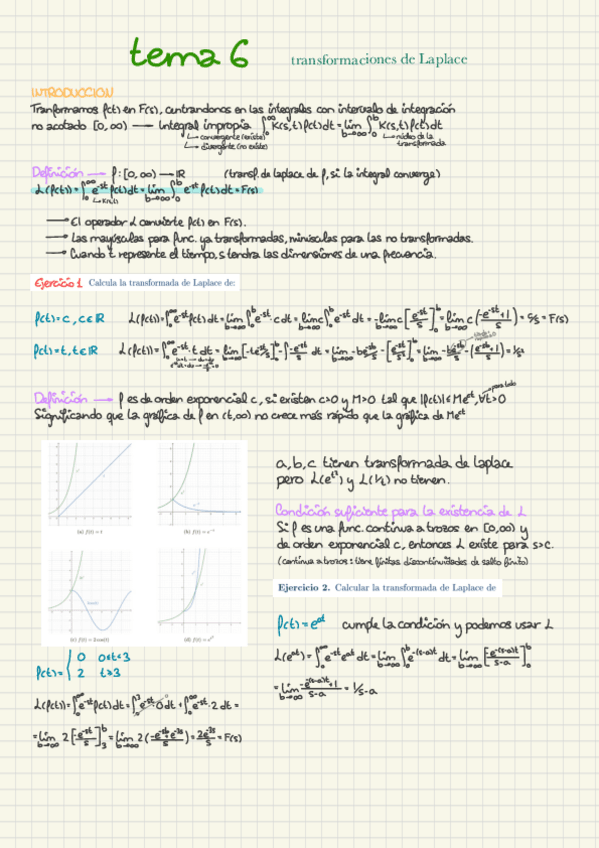 tema 6 transformaciones de Laplace
INTRODUCCION
Tranformamos f(t) en F(s), centrandonos en las integrales con intervalo de integración
no acotado [0,∞) → Integral impropia ∫₀^∞ K(s,t)f(t)dt = lim b→∞ ∫₀^b K(s,t)f(t)dt
↳ convergente (existe) ↳ núcleo de la transformada
↳ divergente (no existe)
Definición → f: [0,∞) → IR (transf. de laplace de f, si la integral converge)
L(f(t)) = ∫₀^∞ e^-st f(t)dt = lim b→∞ ∫₀^b e^-st f(t)dt = F(s)
↳ K(s,t)
→ El operador L convierte f(t) en F(s).
→ Las mayúsculas para func. ya transformadas, minúsculas para las no transformadas.
→ Cuando t represente el tiempo, s tendra las dimensiones de una frecuencia.
Ejercicio 1 Calcula la transformada de Laplace de:
f(t)=c, c∈IR L(f(t))=∫₀^∞ e^-st f(t)dt = lim b→∞ ∫₀^b e^-st·c dt = lim b→∞ c ∫₀^b e^-st dt = -lim b→∞ c [e^-st/s]₀^b = lim b→∞ c (-e^-sb+1/s) = c/s = F(s)
f(t)=t, t∈IR L(f(t))=∫₀^∞ e^-st·t dt = lim b→∞ [-te^-st/s]-∫-e^-st/s dt = lim b→∞ -be^-sb/s - [e^-st/s²]₀^b = lim b→∞
Definición → f es de orden exponencial c, si existen c>0 y M>0 tal que |f(t)|≤Me^ct, ∀t>0
para todo
Significando que la gráfica de f en (t,∞) no crece más rápido que la gráfica de Me^ct
(a) f(t) = t
(b) f(t) = e^-t
(c) f(t) = 2 cos(t)
(d) f(t) = e^t²
a,b,c tienen transformada de laplace
pero L(e^t²) y L(1/t) no tienen.
Condición suficiente para la existencia de L
Si f es una func. continua a trozos en [0,∞) y
de orden exponencial c, entonces L existe para s>c.
(continua a trozos: tiene finitas discontinuidades de salto finito)
Ejercicio 2. Calcular la transformada de Laplace de
f(t)=e^at cumple la condición y podemos usar L
L(e^at)=∫₀^∞ e^-st e^at dt = lim b→∞ ∫₀^b e^-(s-a)t dt = lim b→∞ [-e^-(s-a)t/s-a]₀^b
= lim b→∞ -e^-(s-a)t+1/s-a = 1/s-a
f(t)= { 0 0≤t<3
2 t≥3
L(f(t))=∫₀^∞ e^-st f(t)dt = ∫₀³ e^-st·0dt + ∫₃^∞ e^-st·2dt =
= lim b→∞ 2[-e^-st/s]₃^b = lim b→∞ 2(-e^-sb+e^-3s/s) = 2e^-3s/s = F(s)